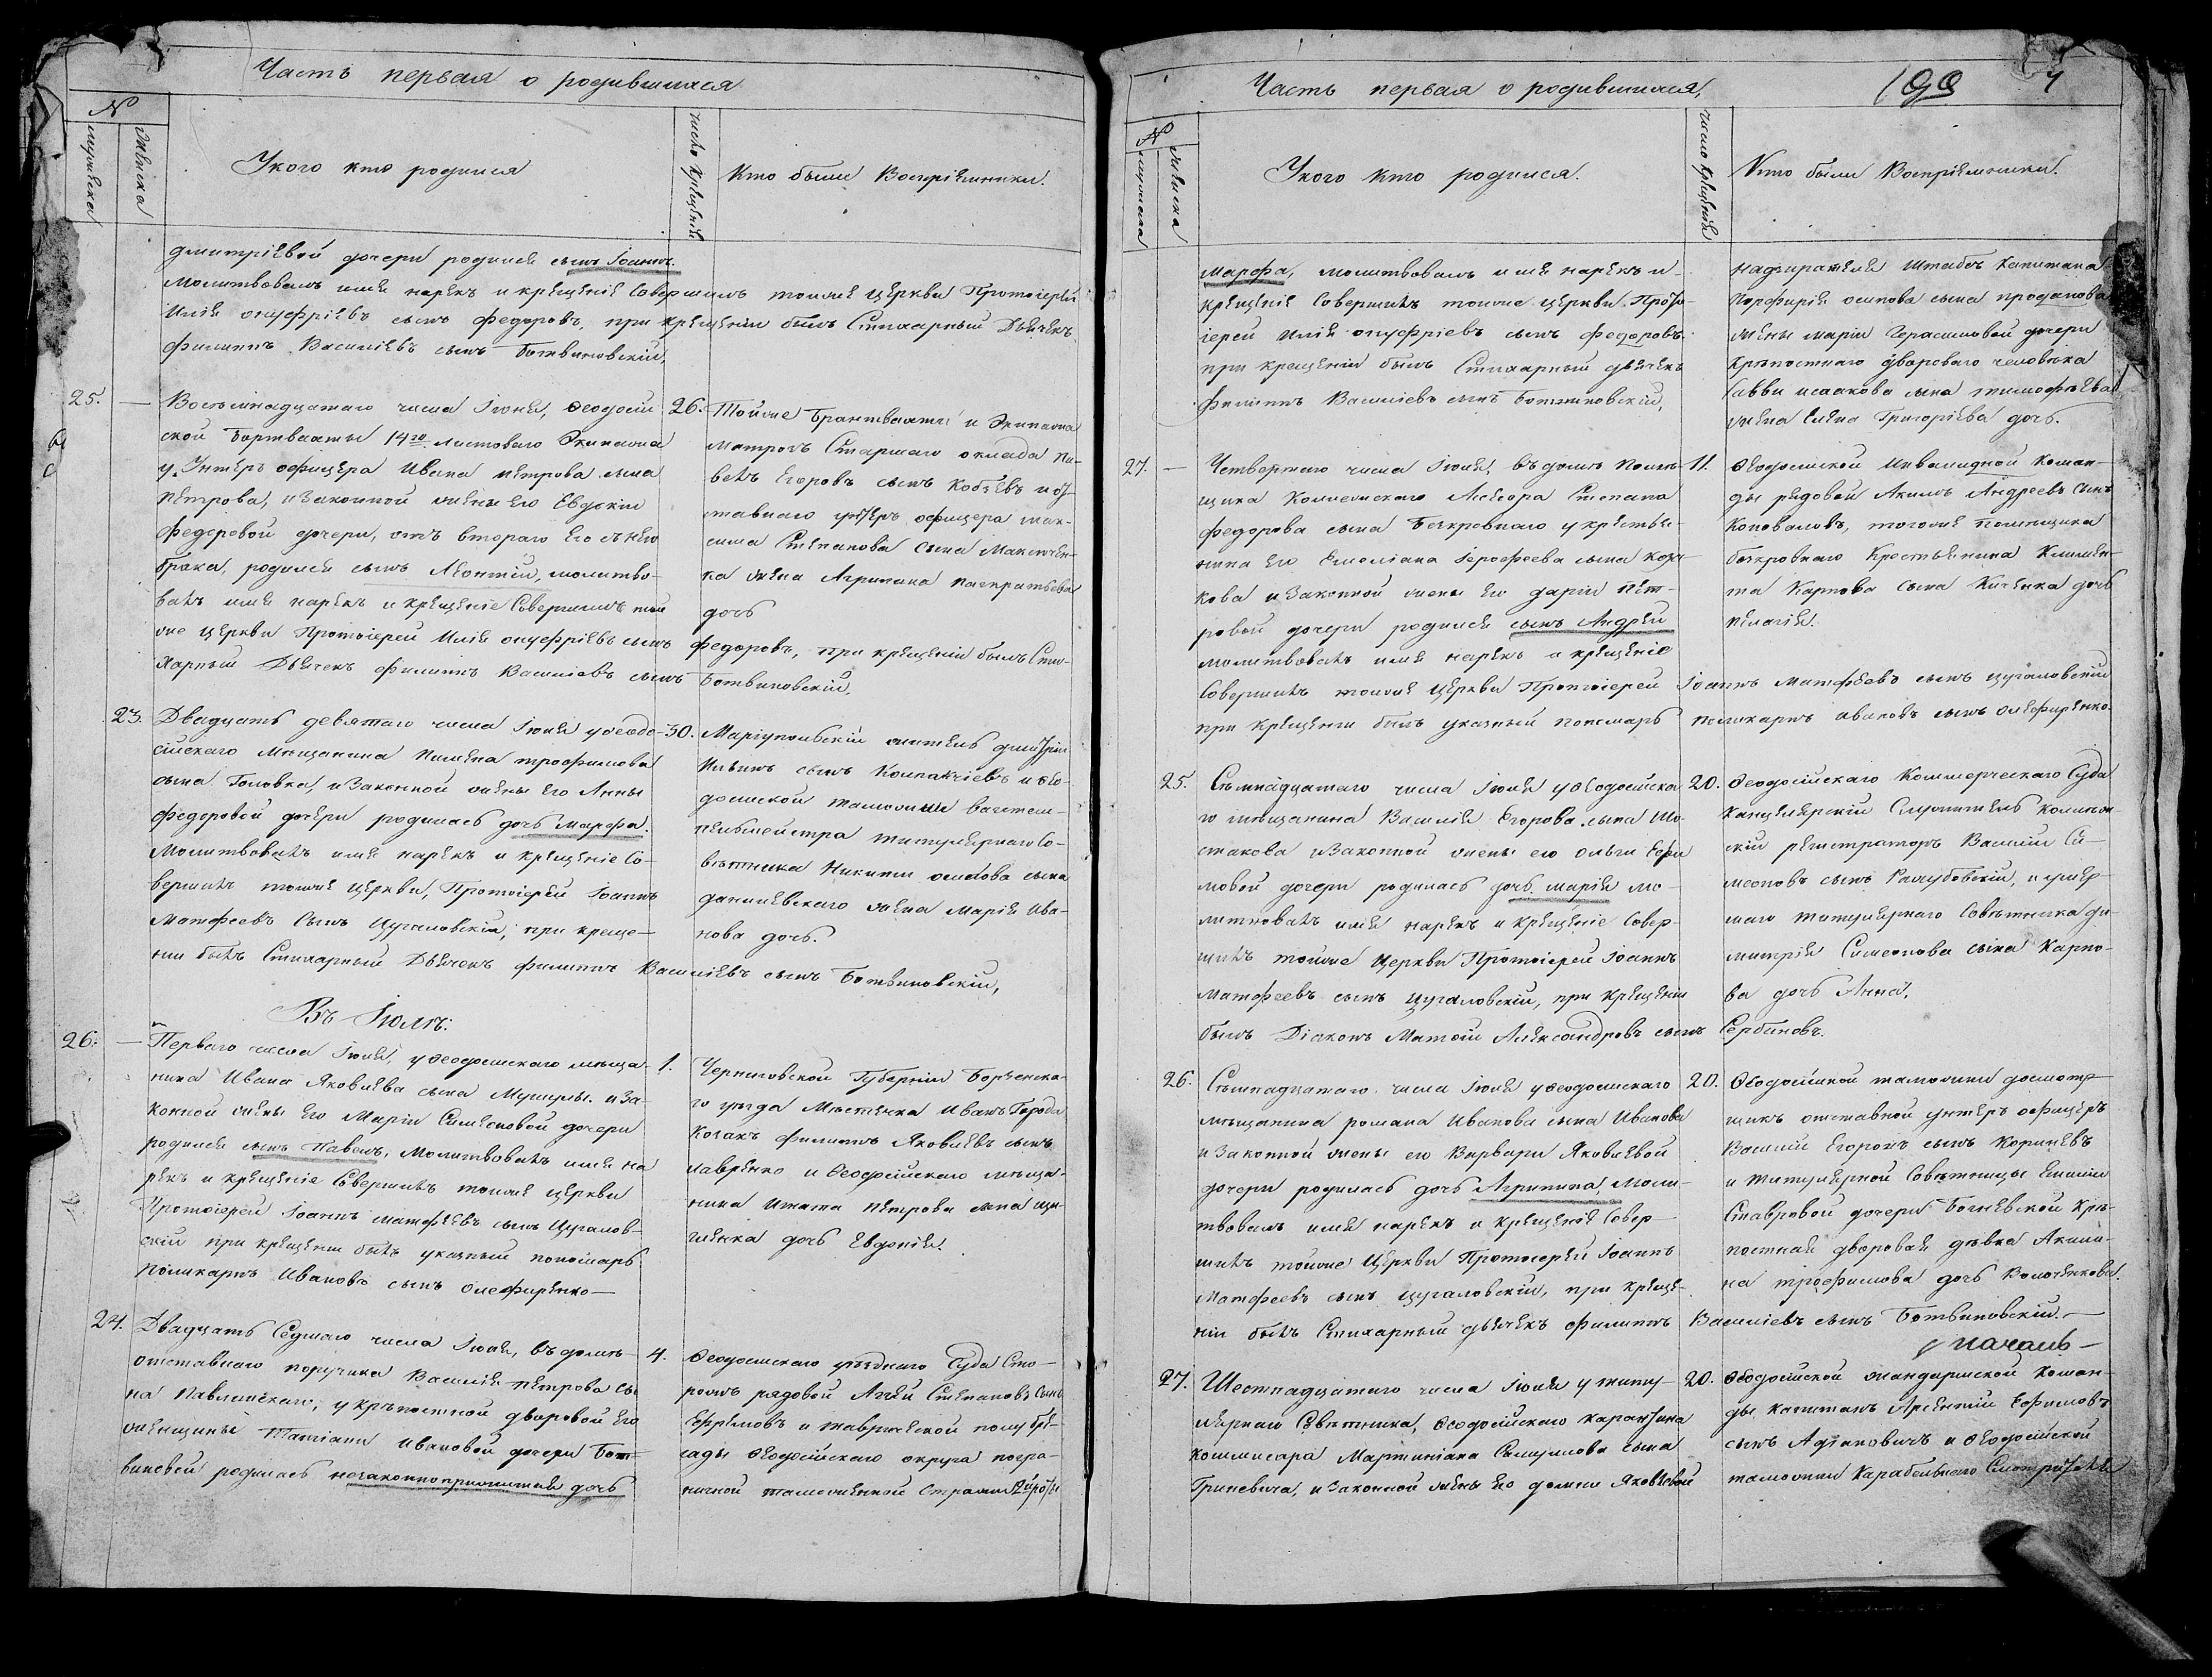 Часть первая о родившихся
N
мужеска
женска
Укого кто родился
число крещенія
Кто были Воспріемники.
Дмитріевой дочери родился сынъ Іоаннъ.
Молитвовалъ имя нарекъ и крещеніе Совершилъ тойже церкви Протоіерей
Илія онуфріевъ сынъ федоровъ, при крещеніи былъ Стихарный Дьячекъ
филиппъ Василіевъ сынъ Ботвиновскій,
25.
Восемнадцатаго числа Іюня, Феодосій
ской 14го ластоваго Экипажа
у Унтеръ офицера Ивана петрова сына
Петрова, изаконной жены его Евдокіи
Федоровой дочери, отъ втораго его сънею
брака, родился сынъ Леонтій, молитво-
валъ имя нарекъ и крещеніе Совершилъ той
же церкви Протоіерей Илія онуфріевъ сынъ федоровъ, при крещеніи былъ Сти-
харный Дьячекъ филиппъ Василіевъ сынъ Ботвиновскій,
26.
Тойже Брантвахты и Экипажа
матрозъ Старшаго оклада па-
велъ Егоровъ сынъ и от
ставнаго унтеръ офицера мак-
сима Степанова сына
ка жена Агрипина панкратьева
дочь
23.
Двадцать девятаго числа Іюня уфеодо-
сійскаго мещанина Пимена трофимова
сына Головка, изаконной жены его Анны
федоровой дочери родилась дочь Марфа.
Молитвовалъ имя нарекъ и крещеніе Со-
вершилъ тойже церкви, Протоіерей Іоаннъ
Матфеевъ сынъ Цугаловскій, при креще-
ніи былъ Стихарный Дьячекъ филиппъ Василіевъ сынъ Ботвиновскій,
30.
Маріупольскій житель дмитрій
Ильинъ сынъ и Фео-
досійской таможни вагтен-
пельмейстра титулярнаго Со-
вѣтника Никиты осипова сына
данилевскаго жена Марія Ива-
нова дочь.
Въ Іюлѣ:
26.
Перваго числа Іюля уфеодосійскаго мѣща-
нина Ивана Яковлева сына изa
конной жены его Маріи Симеоновой дочери
родился сынъ Павелъ, Молитвовалъ имя на
рекъ и крещеніе Совершилъ тойже церкви
Протоіерей Іоаннъ матфеевъ сынъ Цугалов-
скій при крещеніи былъ указный пономарь
поликарпъ Ивановъ сынъ олефиренко
1.
Черниговской Губерніи Борзенска-
го уезда Местечка Иванъ Города
Козакъ филиппъ Яковлевъ сынъ
лавренко и Феодосійскаго мѣща-
нина Игната петрова сына
дочь Евдокія.
24.
Двадцать Седмаго числа Іюня, въ домѣ
отставнаго поручика Василія петрова сы
на Павлинскаго, у крѣпостной дворовой его
женщины Татіаны Ивановой дочери Бот-
виневой родилась незаконноприжитая дочь
4.
Феодосійскаго уѣзднаго Суда Сто-
рожъ рядовой Степановъ сынъ
Ефремовъ и таврической полу бри-
гады Феодосійскаго округа погра-
ничной таможенной Стражи
Часть первая о родившихся,
7
N
мужеска
женска
Укого кто родился.
число крещенія
Кто были Воспріемники.
марфа, молитвовалъ имя нарекъ и
крещеніе Совершилъ тойже церкви Прото-
іерей Илія онуфріевъ сынъ федоровъ.
при крещеніи былъ Стихарный дьячекъ
филиппъ Василіевъ сынъ Ботвиновскій,
надзирателя штабсъ капитана
Порфирія осипова сына проданова
жены маріи Герасимовой дочери
крѣпостнаго двороваго человѣка
Саввы исаакова сына тимофѣева
жена Елена Григорьева дочь.
27.
Четвертаго числа Іюля, въ домѣ помѣ-
щика Колежскаго Асесора Степана
федорова сына Безкровнаго у крестья-
нина его Емеліана Іерофеева сына
кова изаконной жены его даріи Пет-
ровой дочери родился сынъ Андрей
молитвовалъ имя нарекъ и крещеніе
Совершилъ тойже церкви Протоіерей Іоаннъ Матфѣевъ сынъ Цугаловскій
при крещеніи былъ указный пономарь поликарпъ ивановъ сынъ Олефиренко.
11.
Феодосійской Инвалидной Коман-
ды рядовой Акимъ Андреевъ сынъ
Коноваловъ, тогоже помѣщика
безкровнаго крестьянина Климен-
та Карпова сына дочь
пелагія.
25.
Семнадцатаго числа Іюля уфеодосійска
го мѣщанина Василія Егорова сына
стакова изаконной жены его ольги Ефи
мовой дочери родилась дочь марія мо-
литвовалъ имя нарекъ и крещеніе Совер-
шилъ тойже церкви Протоіерей Іоаннъ
Матфеевъ сынъ цугаловскій, при крещеніи
былъ Діаконъ Матвій Александровъ сынъ Сербиновъ.
20.
Феодосійскаго Коммерческаго Суда
Канцелярскій Служитель колеж
скій регистраторъ Василій Си-
меоновъ сынъ и умер
шаго титулярнаго Совѣтника ди-
митрія Симеонова сына Карпо-
ва дочь Анна,
26.
Семнадцатаго числа Іюля уфеодосійскаго
мѣщанина романа Иванова сына Иванова
и законной жены его Варвары Яковлевой
дочери родилась дочь Агрипина, моли-
твовалъ имя нарекъ и крещеніе Совер-
шилъ тойже Церкви Протоіерей Іоаннъ
Матфеевъ сынъ цугаловскій, при креще-
ніи былъ Стихарный дьячекъ филиппъ Василіевъ сынъ Ботвиновскій.
20.
Феодосійской таможни досмотр
щикъ отставной унтеръ офицеръ
Василій Егоровъ сынъ Корнеевъ
и титулярной Совѣтницы Емиліи
Ставровой дочери крѣ-
постная дворовая дѣвка Акили-
на трофимова дочь
у начальн
27.
Шестнадцатаго числа Іюля у титу-
лярнаго Совѣтника, Феодосійскаго карантина
коммисара Мартиніана Самуилова сына
Гриневича, и законной жены его Яковлевой
20.
Феодосійской жандармской коман-
ды капитанъ Арсентій Ефимовъ
сынъ и Феодосійской
таможни Карабельнаго Смотрителя